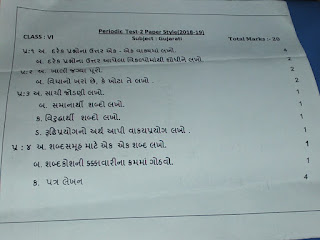 Periodic Test-2 Paper Style(2018-19)
CLASS : VI Subject : Gujarati Total Marks :- 20
પ્ર:૧ અ. દરેક પ્રશ્નોના ઉત્તર એક - એક વાક્યમાં લખો. 4
બ. દરેક પ્રશ્નોના ઉત્તર આપેલા વિકલ્પોમાંથી શોધીને લખો. 2
પ્ર:૨ અ. ખાલી જગ્યા પૂરો. 2
બ. વિધાનો ખરાં છે, કે ખોટા તે લખો . 2
પ્ર:૩ અ. સાચી જોડણી લખો. 1
બ. સમાનાર્થી શબ્દો લખો. 1
ક. વિરુદ્ધાર્થી શબ્દો લખો. 1
ડ. રૂઢિપ્રયોગનો અર્થ આપી વાક્યપ્રયોગ લખો . 1
પ્ર : ૪ અ. શબ્દસમૂહ માટે એક એક શબ્દ લખો. 1
બ. શબ્દકોશની કક્કાવારીના ક્રમમાં ગોઠવો. 1
ક. પત્ર લેખન 4